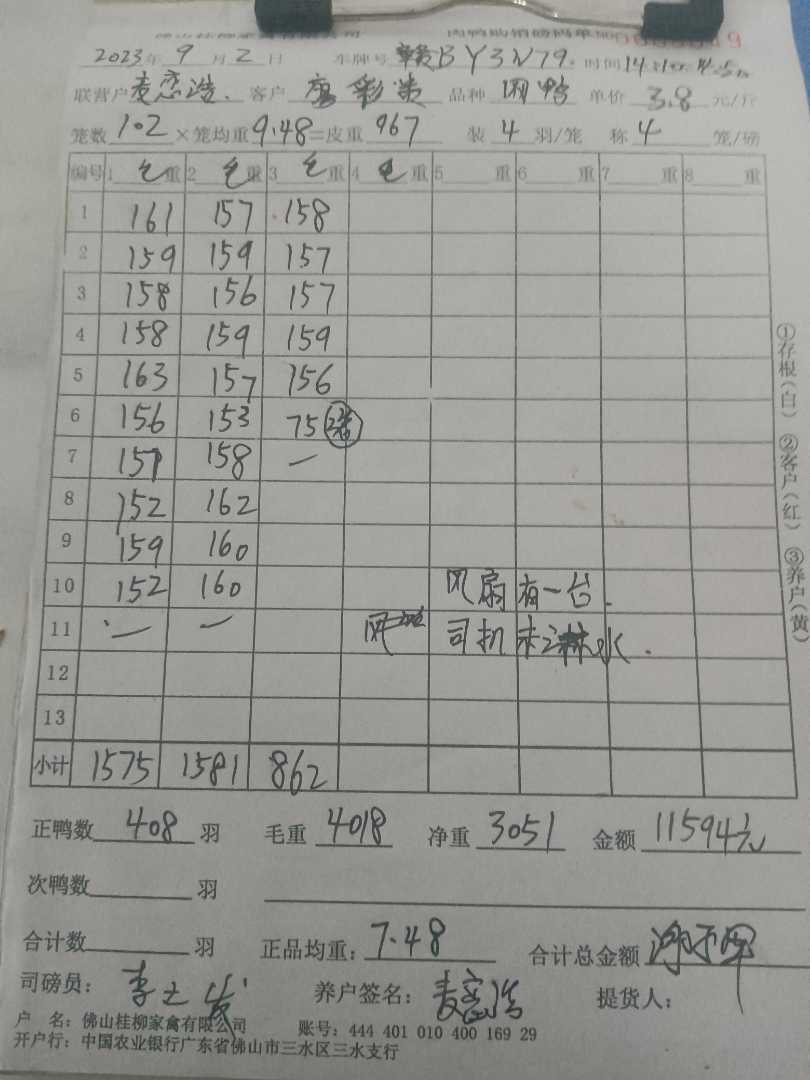 2023年9月2日 车牌号 赣BY3N79. 时间14
联营户 麦恋浩. 客户 品种 肉鸭 单价 3.8 元/斤
笼数 102 ×笼均重 9.48 =皮重 967 装 4 羽/笼 称 4 笼/磅
编号 1 毛重 2 毛重 3 毛重 4 毛重 5 重 6 重 7 重 8 重
1 161 157 158
2 159 159 157
3 158 156 157
4 158 159 159
5 163 157 156
6 156 153 75
7 157 158 —
8 152 162
9 159 160
10 152 160 风扇有一台.
11 — — 司机 水.
12
13
小计 1575 1581 862
①存根(白) ②客户(红) ③养户(黄)
正鸭数 408 羽 毛重 4018 净重 3051 金额 11594元
次鸭数 羽
合计数 羽 正品均重: 7.48 合计总金额
司磅员: 李 养户签名: 麦恋浩 提货人:
户 名: 佛山桂柳家禽有限公司 账号: 444 401 010 400 169 29
开户行: 中国农业银行广东省佛山市三水区三水支行